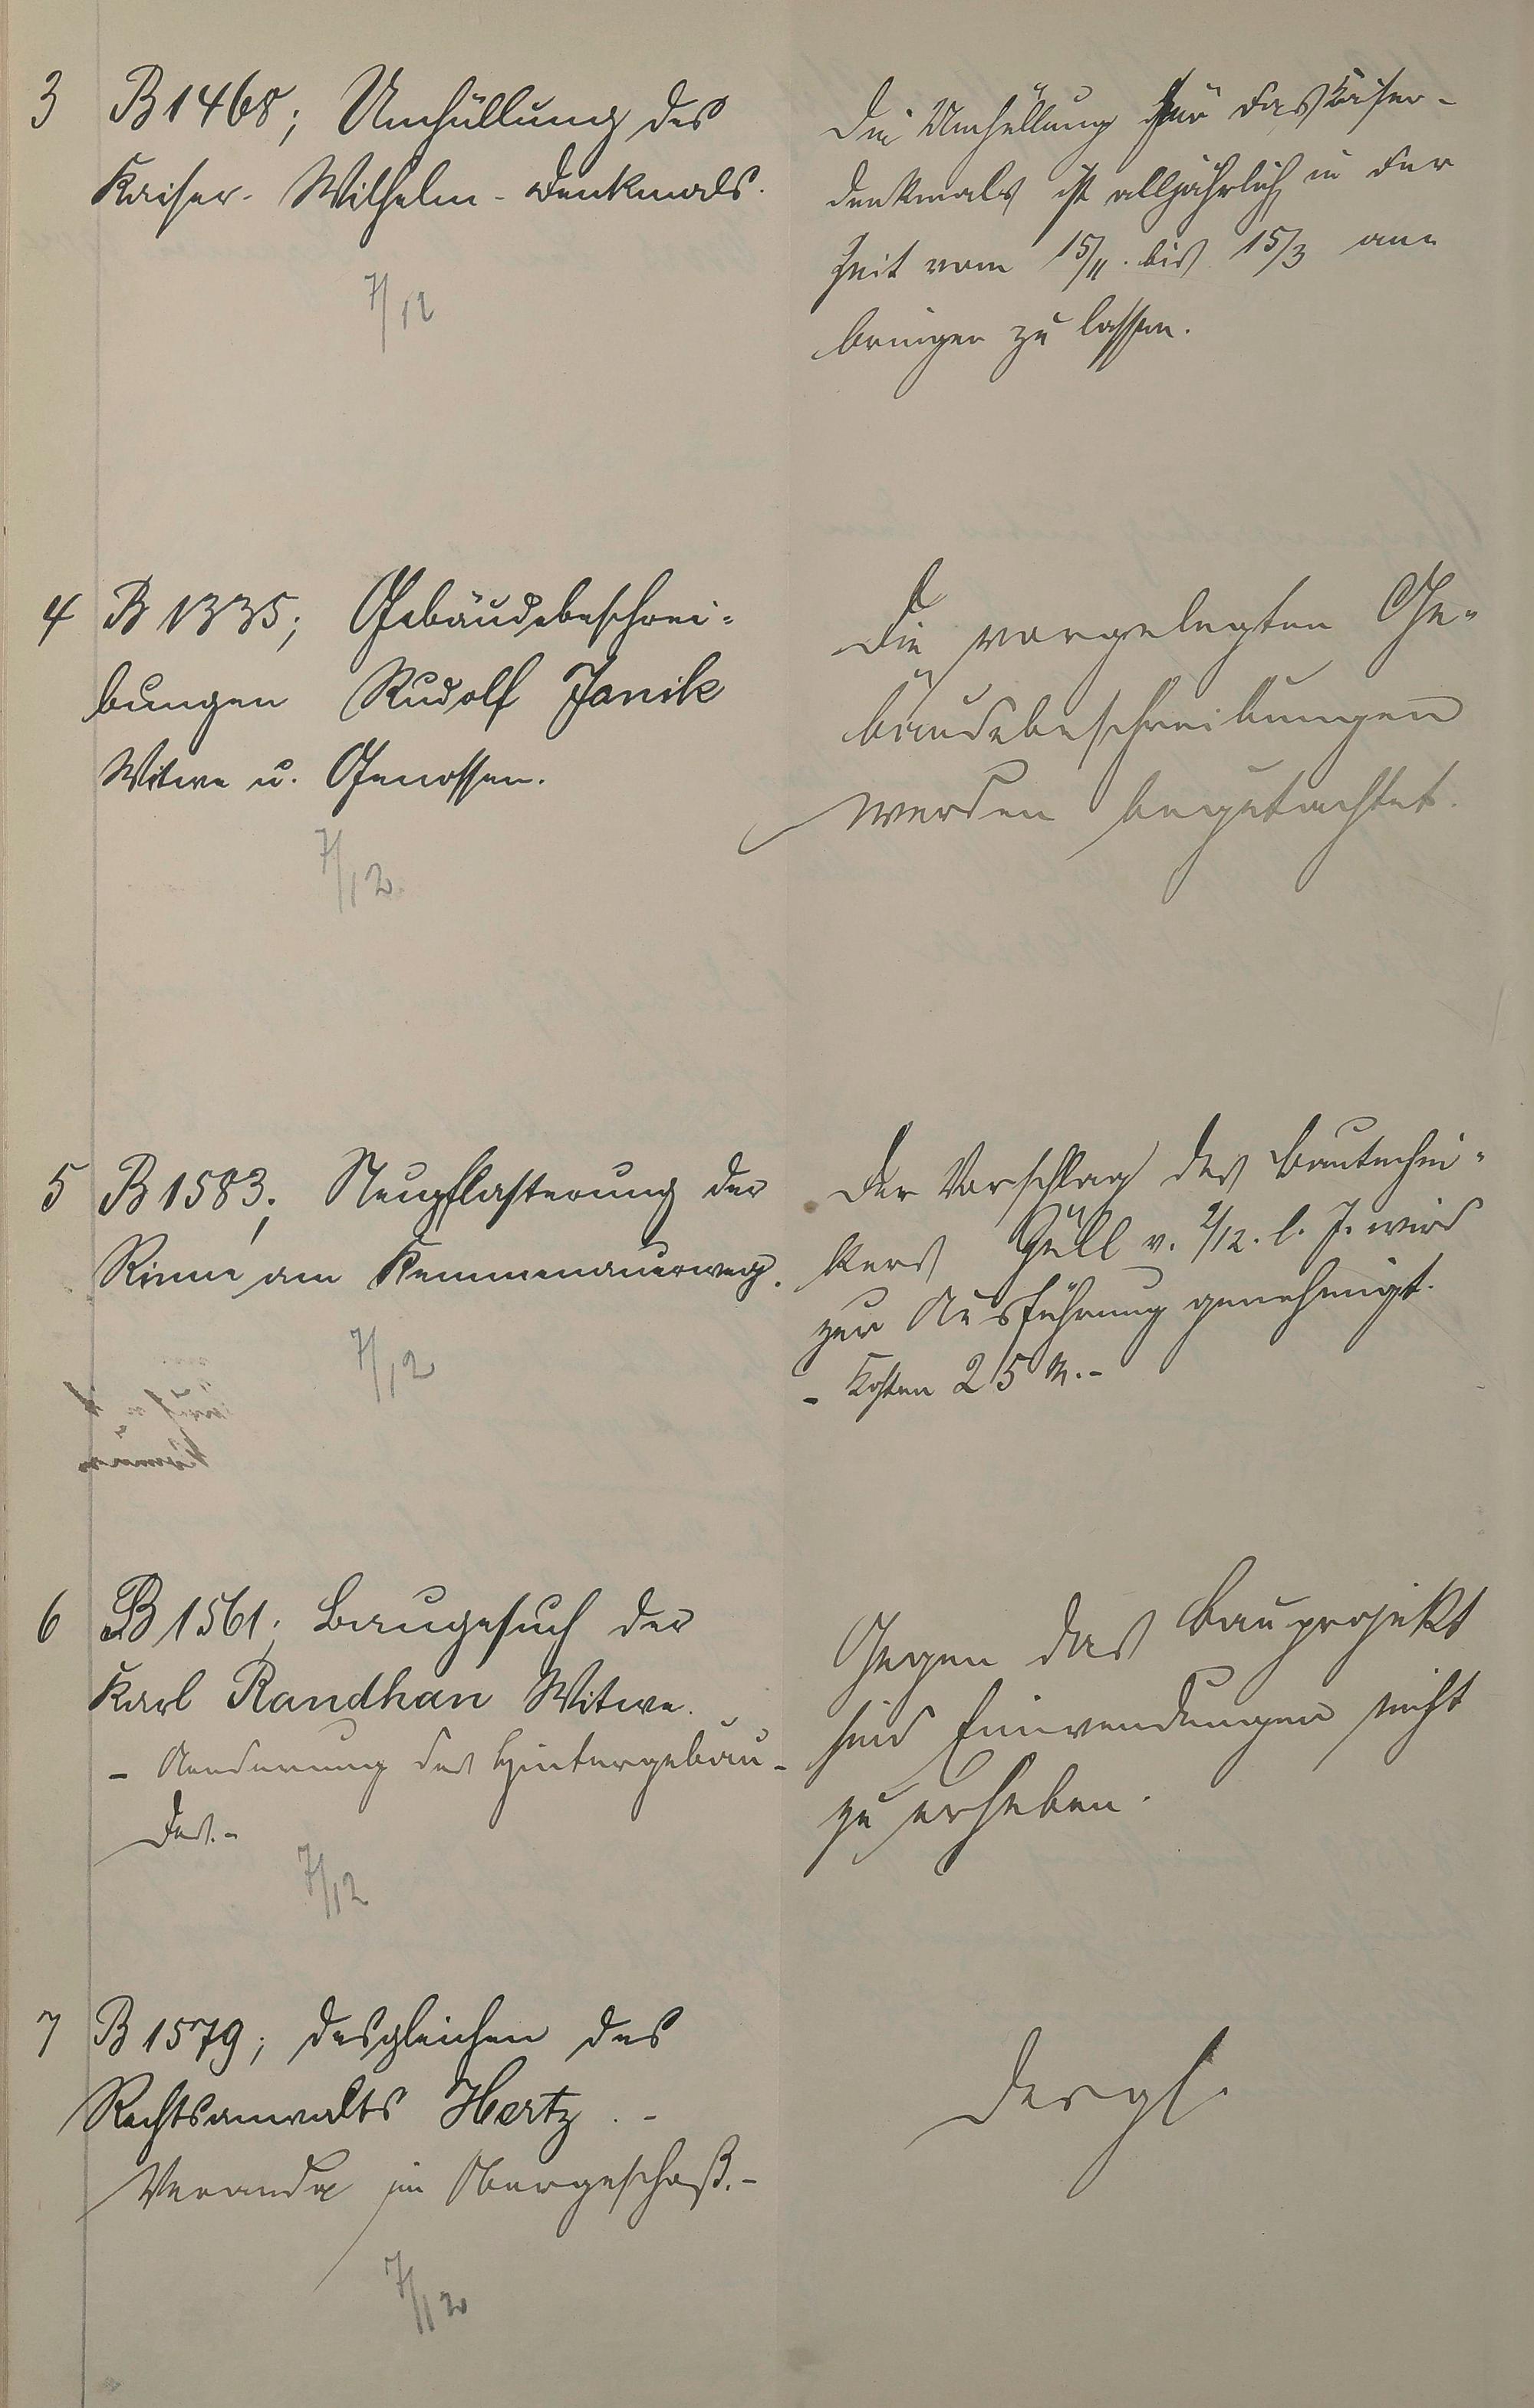 3 B 1468; Umhüllung des
Kaiser-Wilhelm-Denkmals.
7/12
Die Umhüllung für das Kaiser-
denkmals ist alljährlich in der
Zeit vom 15/11. bis 15/3 an-
bringen zu lassen.
4 B 1335; Gebäudebeschrei-
bungen Rudolf Janik
Witwe u. Genossen.
7/12.
Die vorgelegten Ge-
bäudebeschreibungen
werden begutachtet.
5 B 1583; Neupflasterung der
Rinne am Kemmenauerweg.
7/12
Der Vorschlag des Bautechni-
kers Güll v. 2/12. l. J. wird
zur Ausführung genehmigt.
- Kosten 25 M.-
6 B 1561; Baugesuch der
Karl Randhan Witwe.
- Aenderung des Hintergebäu-
des.-
7/12
Gegen das Bauprojekt
sind Einwendungen nicht
zu erheben.
7 B 1579; desgleichen des
Rechtsanwalts Hertz. -
Veranda im Obergeschoß.-
7/12
Desgl.